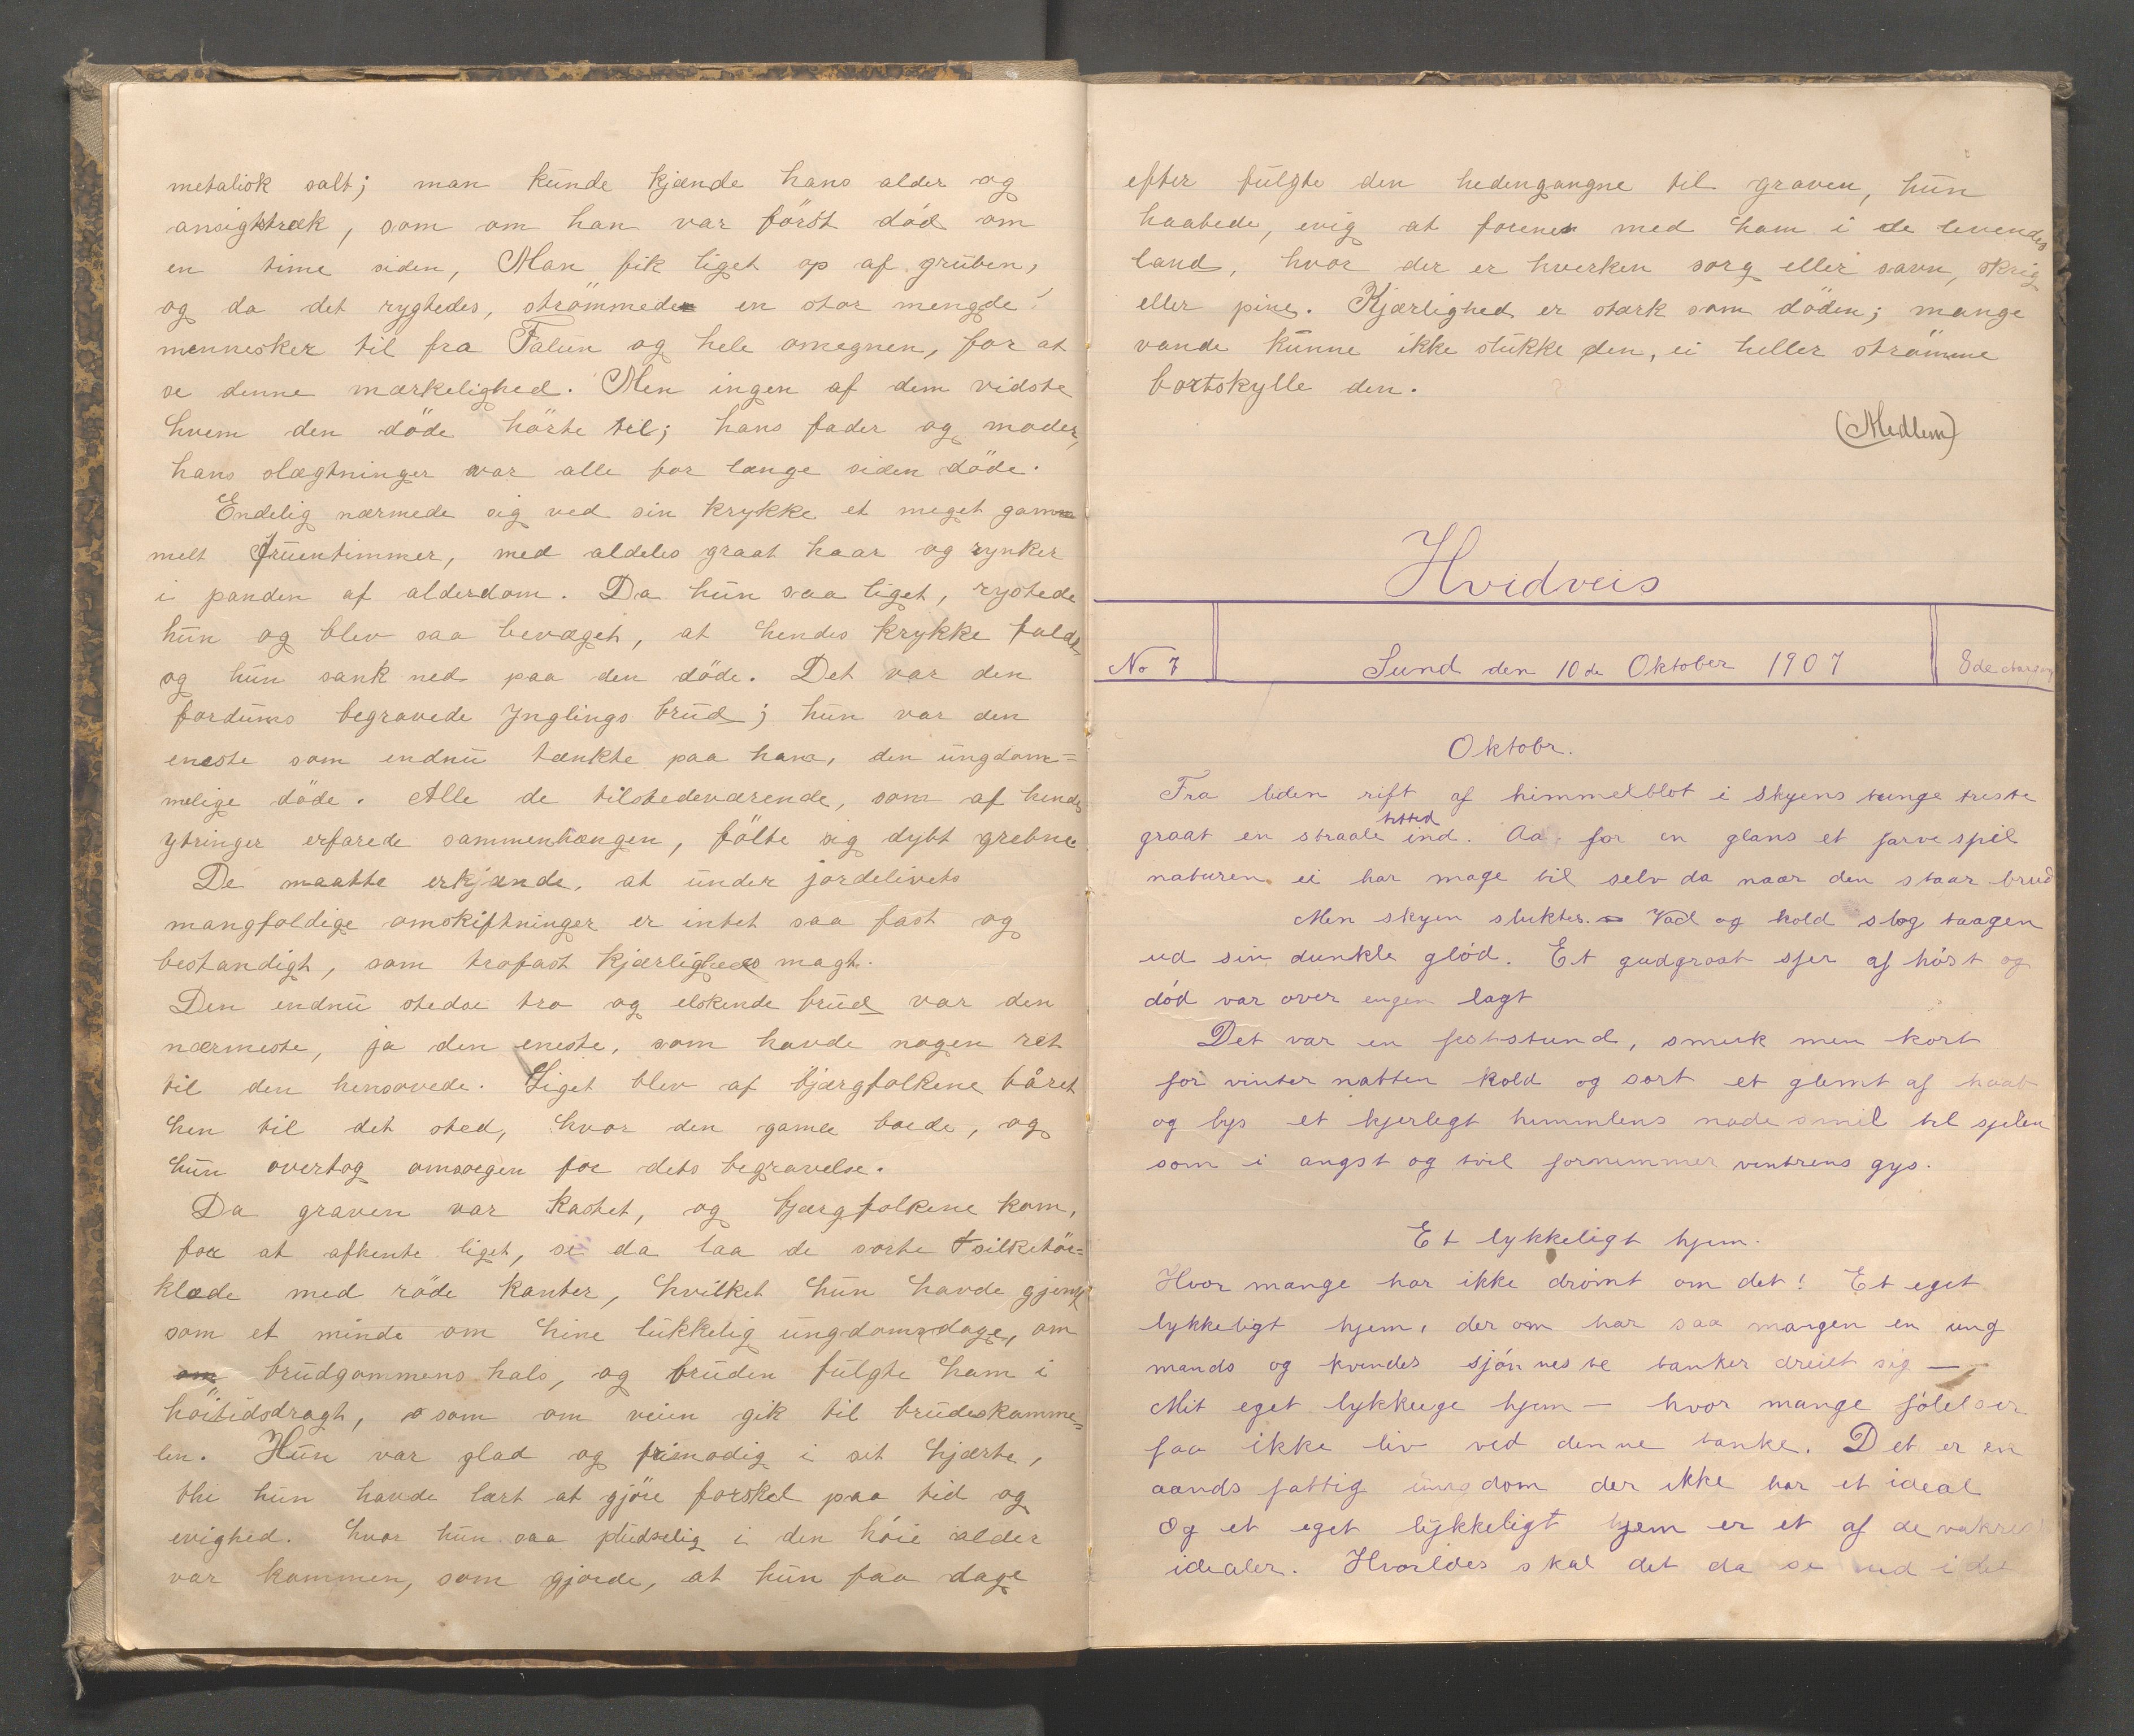 metalisk salt; man kunde kjænde hans alder og
ansigttræk, som om han var först död om
en time siden, Man fik liget op af gruben,
og da det rygtedes, strömmede en stor mengde
mennesker til fra Falun og hele omegnen, for at
se denne mærkelighed. Men ingen af dem vidste
hvem den döde hörte til; hans fader og moder,
hans slægtninger var alle for længe siden döde.
Endelig nærmede sig ved sin krykke et meget gam
melt fruentimmer, med aldeles graat haar og rynker
i panden af alderdom. Da hun saa liget, rystede
hun og blev saa bevæget, at hendes krykke faldt
og hun sank ned paa den döde. Det var den
fordums begravede Ynglings brud; hun var den
eneste som endnu tænkte paa ham, den ungdom=
melige döde. Alle de tilstedeværende, som af hendes
ytringer erfarede sammenhængen, fölte sig dybt grebne
De maatte erkjænde, at under jordelivets
mangfoldige omskiftninger er intet saa fast og
bestandigt, som trofast kjærligheds magt.
Den endnu stedse tro og elskende brud var den
nærmeste, ja den eneste, som havde nogen ret
til den hensovede. Liget blev af bjærgfolkene båret
hen til det sted, hvor den gamle boede, og
hun overtog omsorgen for dets begravelse.
Da graven var kastet, og bjærgfolkene kom,
for at afhente liget, se da laa de sorte silketör=
klæde med röde kanter, hvilket hun havde gjemt
som et minde om hine lukkelig ungdomsdage, om
brudgommens hals, og bruden fulgte ham i
höitidsdragt, som om veien gik til brudeskamme=
len. Hun var glad og frimodig i set hjærte,
thi hun havde lært at gjöre forskel paa tid og
evighed. hvor hun saa pludselig i den höie alder
var kommen, som gjorde, at hun faa dage
efter fulgte den hedengangne til graven, hun
haabede, evig at forenes med ham i de levendes
land, hvor der er hverken sorg eller savn, skrig
eller pine. Kjærlighed er stærk som döden; mange
vande kunne ikke slukke den, ei heller strömme
bortskylle den.
(Medlem)
Hvidveis
No 7 Sund den 10de Oktober 1907 8de
Oktobr.
Fra liden rift af himmelblot i skyens tunge triste
graat en straale titted ind. Aa for en glans et farvespil
naturen ei har mage til selv da naar den staar brud
Men skyen sluktes. Vad og kold slog taagen
ud sin dunkle glöd. Et gudgraat sjer af höst og
död var over engen lagt
Det var en feststund, smuk men kort
for vinter natten kold og sort et glemt af haab
og lys et kjerlegt himmlens nade smil til sjelen
som i angst og tvil fornemmer vintrens gys.
Et lykkeligt hjem.
Hvor mange har ikke drömt om det! Et eget
lykkeligt hjem, der om har saa mangen en ung
mands og kvindes sjönneste tanker dreiet sig —
Mit eget lykkeige hjem — hvor mange fölelser
faa ikke liv ved denne tanke. Det er en
aands fattig ungdom der ikke har et ideal
Og et eget lykkeligt hjem er et af de vakrest
idealer. Hvorldes skal det da se ud i det